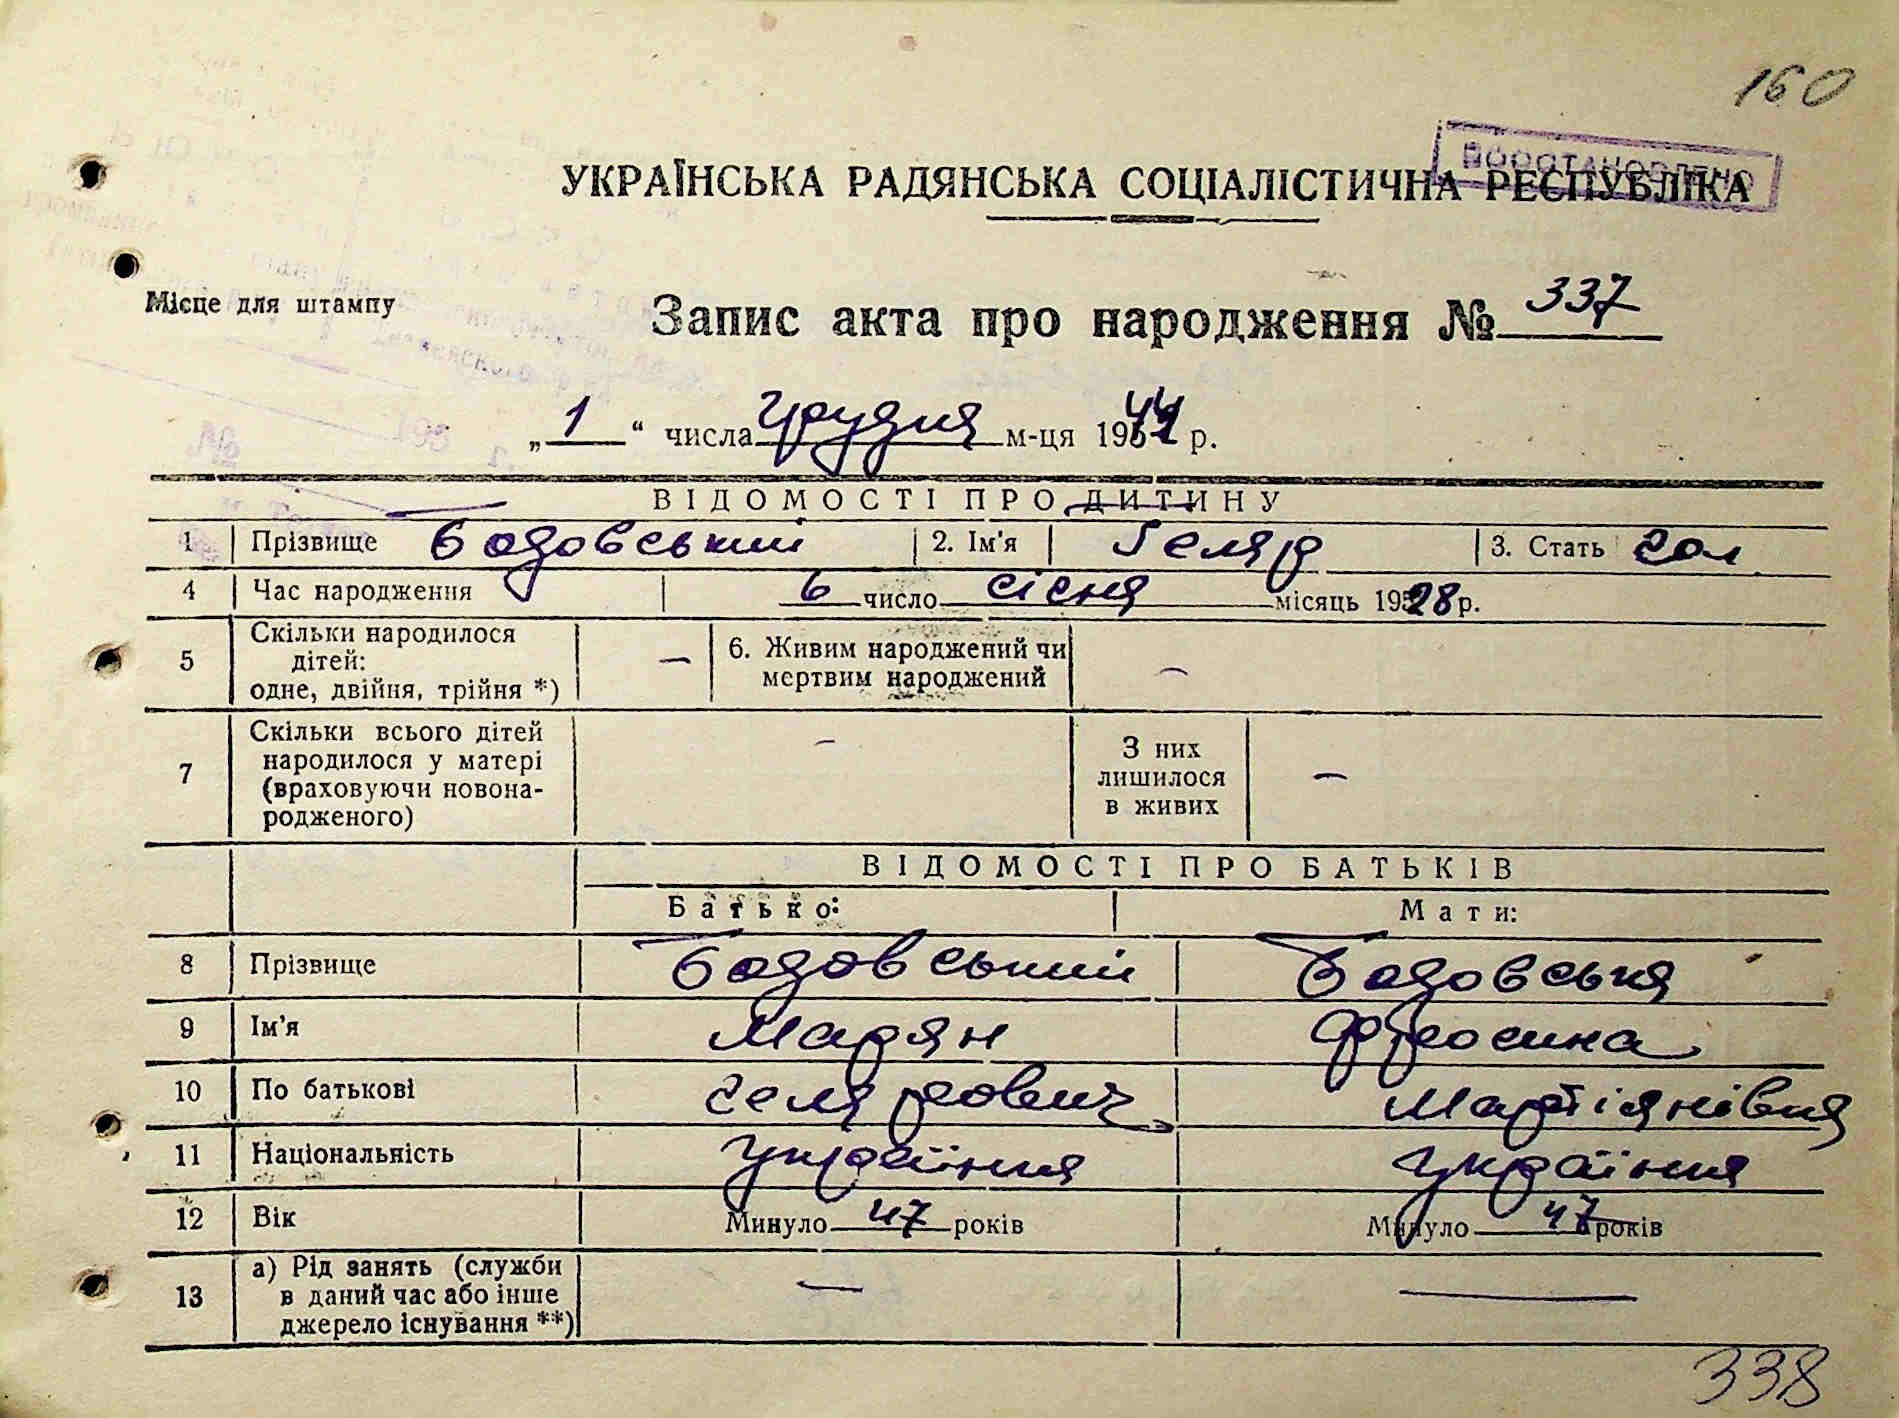 160
ВОССТАНОВЛЕНО
УКРАЇНСЬКА РАДЯНСЬКА СОЦІАЛІСТИЧНА РЕСПУБЛІКА
Місце для штампу
Запис акта про народження № 337
„ 1 “ числа грудня м-ця 1944 р.
ВІДОМОСТІ ПРО ДИТИНУ
1 Прізвище Бодовський 2. Ім'я Геляр 3. Стать чол
4 Час народження 6 число січня місяць 1928 р.
5 Скільки народилося дітей: одне, двійня, трійня *) — 6. Живим народжений чи мертвим народжений —
7 Скільки всього дітей народилося у матері (враховуючи новона-родженого) — З них лишилося в живих —
ВІДОМОСТІ ПРО БАТЬКІВ
Батько: Мати:
8 Прізвище Бодовський Бодовська
9 Ім'я Марян Фросина
10 По батькові Гелярович Мартіянівна
11 Національність українця українця
12 Вік Минуло 47 років Минуло 47 років
13 а) Рід занять (служби в даний час або інше джерело існування **) — —
338